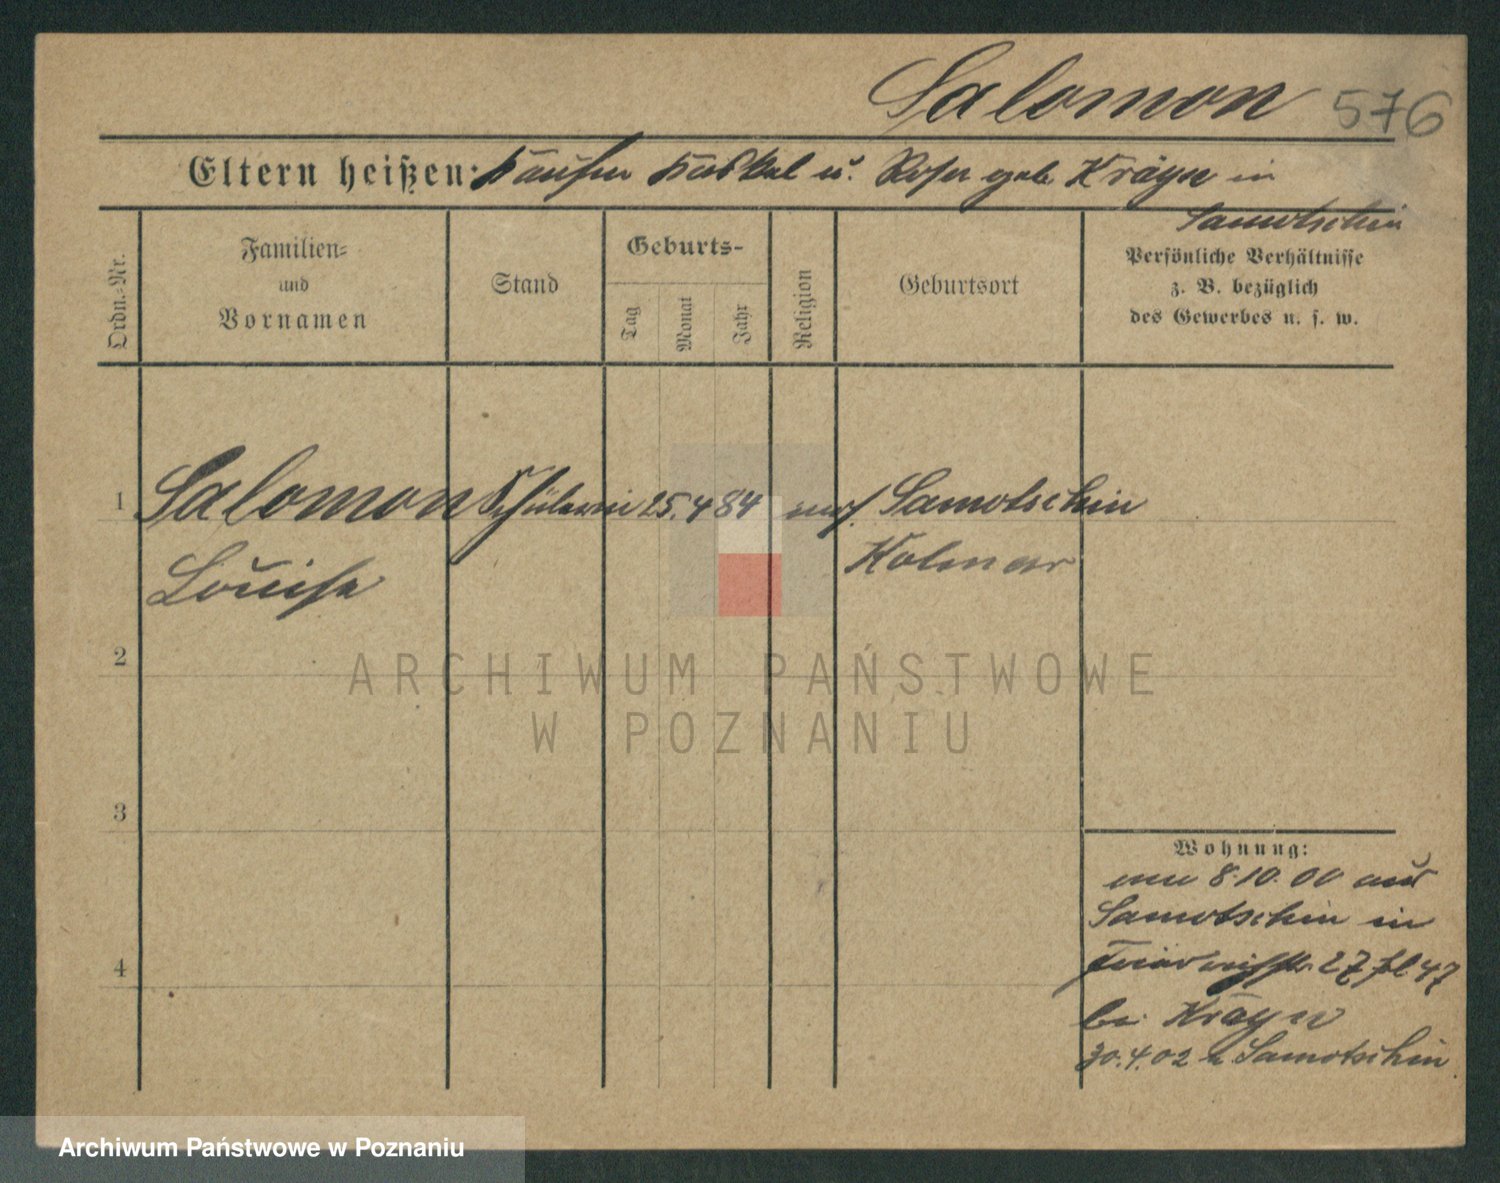 Salomon 576
Eltern heißen: Kaufm Haskel u. Rosa geb. Krayn in
Samotschin
Ordn.-Nr.
Familien-
und
Vornamen
Stand
Geburts-
Tag
Monat
Jahr
Religion
Geburtsort
Persönliche Verhältnisse
z. B. bezüglich
des Gewerbes u. s. w.
1 Salomon Schülerin 25.4 84 mos. Samotschin
Louise Kolmar
2
ARCHIWUM PAŃSTWOWE
W POZNANIU
3
Wohnung:
8.10.00 aus
Samotschin in
27 47
4
bei Krayn
30.4.02 n Samotschin
Archiwum Państwowe w Poznaniu